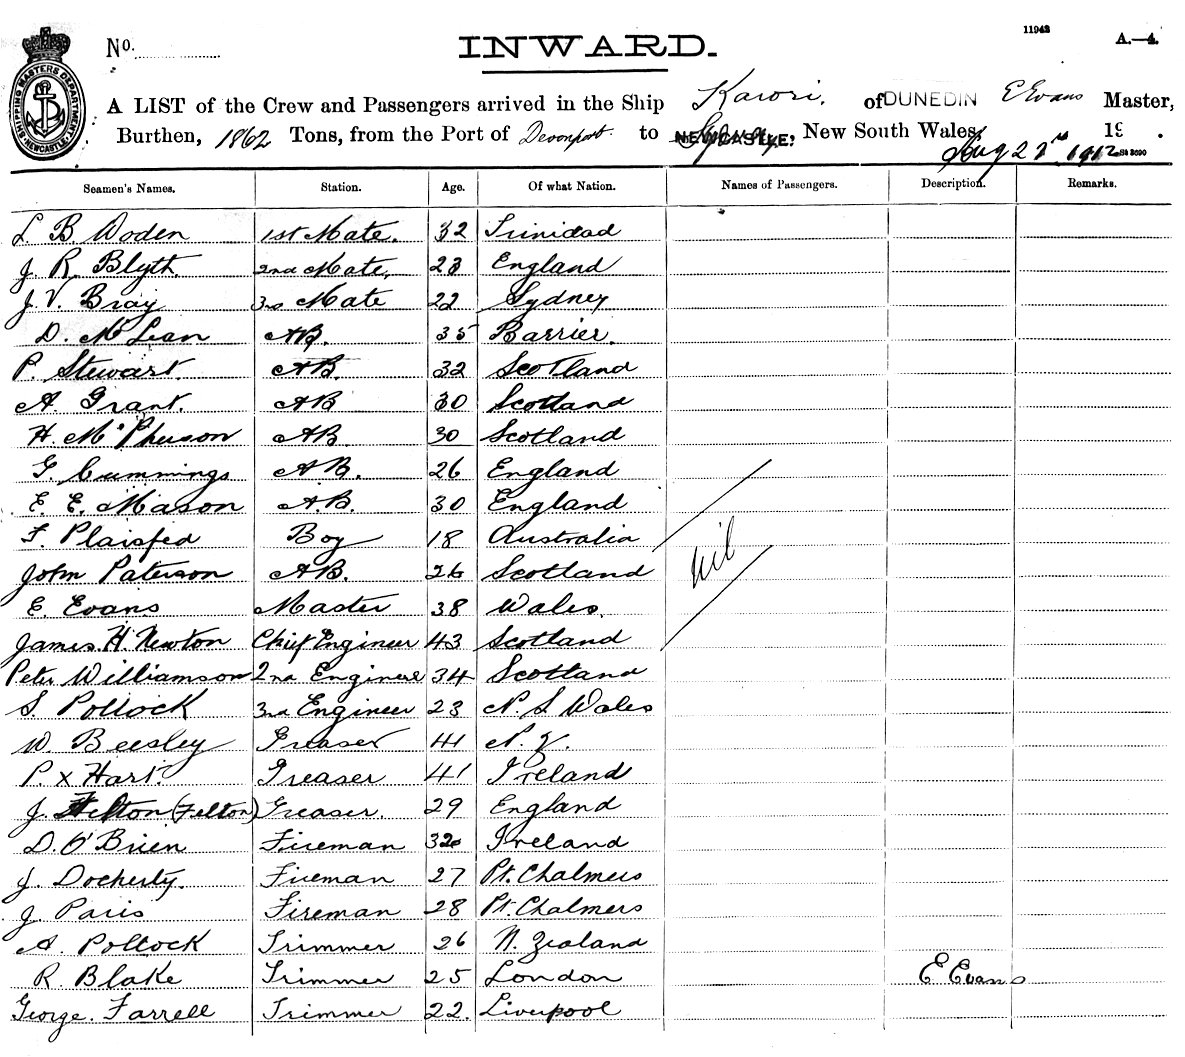 No.
INWARD.
11942
A.—4.
SHIPPING MASTERS DEPARTMENT NEWCASTLE
A LIST of the Crew and Passengers arrived in the Ship Karori. of DUNEDIN E Evans Master,
Burthen, 1862 Tons, from the Port of Devonport to NEWCASTLE. Sydney, New South Wales, Aug 1912
St 3690
Seamen's Names. Station. Age. Of what Nation. Names of Passengers. Description. Remarks.
L. B Woden 1st Mate. 32 Trinidad
J. R. Blyth 2nd Mate, 23 England
J. V. Bray 3rd Mate 22 Sydney
D. McLean AB. 35 Barrier.
P. Stewart. AB. 32 Scotland
A. Grant. AB 30 Scotland
H. McPherson AB. 30 Scotland
G. Cummings AB. 26 England
E. E. Mason A.B. 30 England
F. Plaisfed Boy 18 Australia
Nil
John Paterson AB. 26 Scotland
E. Evans Master 38 Wales.
James. H. Newton Chief Engineer 43 Scotland
Peter Williamson 2nd Engineer 34 Scotland
S. Pollock 3rd Engineer 23 N. S Wales
W. Beesley Greaser 41 N. Z.
P. x Hart. Greaser 41 Ireland
J. (Felton) Greaser. 29 England
D. O'Brien Fireman Ireland
J. Docherty. Fireman 27 Pt. Chalmers
J. Paris Fireman 28 Pt. Chalmers
A. Pollock Trimmer 26 N. Zealand
R. Blake Trimmer 25 London E Evans
George. Farrell Trimmer 22. Liverpool